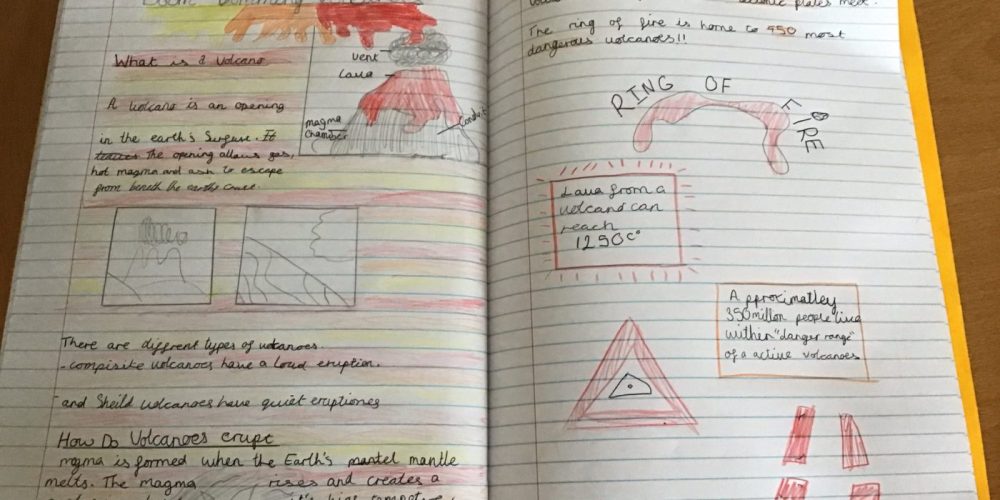 What is a Volcano
A Volcano is an opening
in the earth's Surfure. It
The opening allows gas,
hot magma and ash to escape
from beneath the earths
vent
Lava
magma
Chamber
Conduit
There are different types of volcanoes.
- compisite volcanoes have a loud eruption.
- and Sheild volcanoes have quiet eruptiones
How Do Volcanoes erupt
magma is formed when the Earth's mantel mantle
melts. The magma rises and creates a
plates meet.
The ring of fire is home to 450 most
dangerous volcanoes!!
RING OF FIRE
Lava from a
volcano can
reach
1250c°
Approximatley
350 million people live
within "danger range"
of a active volcanoes